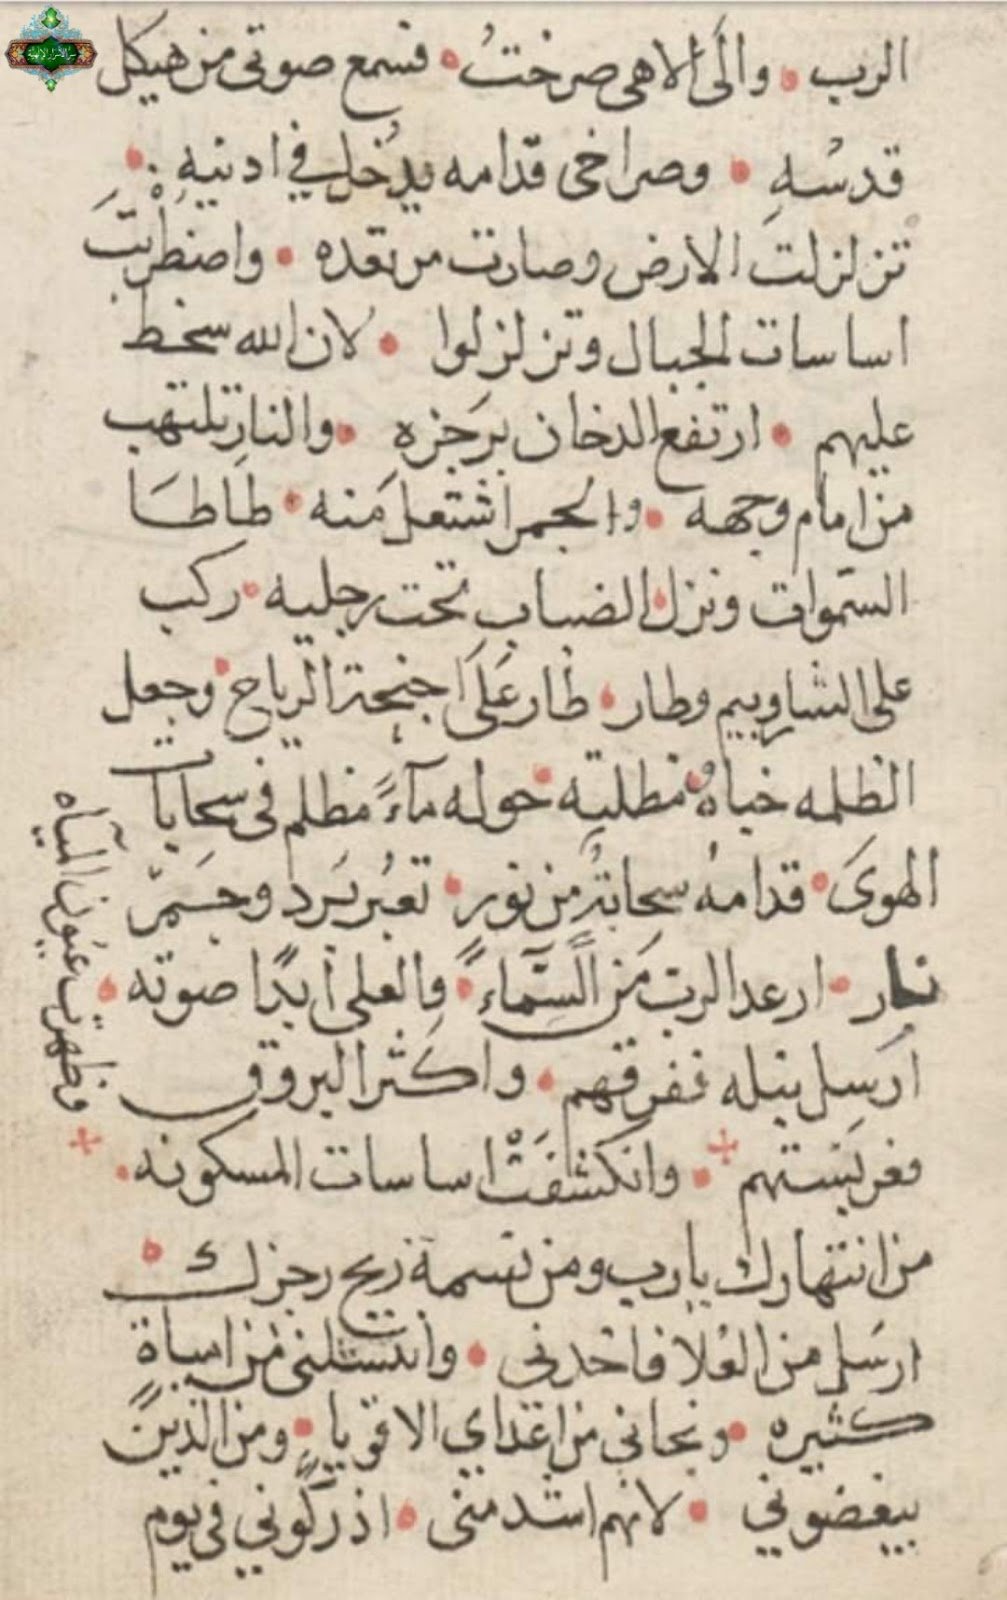 الرب • والَى الاهى صرختُ • فسمع صوتى من هيكل
قدسُهِ • وصراخى قدامه يدُخل في ادنيه •
تزلزلت الارض وصارت مرتعده • واضطرَبتَ
اساسات الجبال وتزلزلوا • لان الله سخط
عليهم • ارتفع الدخان برَجزه • والنار تلتهب
من امام وجهه • والجمر اشتعل منه • طاطا
السَموات ونزل • الضباب تحت رجليه • ركب
على الشاروبيم وطار • طار علَى اجنحة الرياح • وجعل
الظلمه خباهُ • مظلته • حوله مآءً مظلم فى سحابات
الهوىَ • قدامهُ سحابةٌ من نور • تعبُر بَرد وجَمرّ
نار • ارعد الرب من السَّمآء • والعلى ابدًا صوته •
ارَسل نبله ففرقهم • واكثر البروق
• وانكشفَتْ اساسات المسكونه •
من انتهارك يا رب ومن نسمة ريح رجزك
ارسَل من العُلا فاخدنى • وانتشلنى من امياةٍ
كثيره • ونجانى من اعَداي الاقويا • ومن الذينَ
يبغضونى • لانهم اشد منى • ادركَونى فى يوم
وظهرت عيَون الميَآه